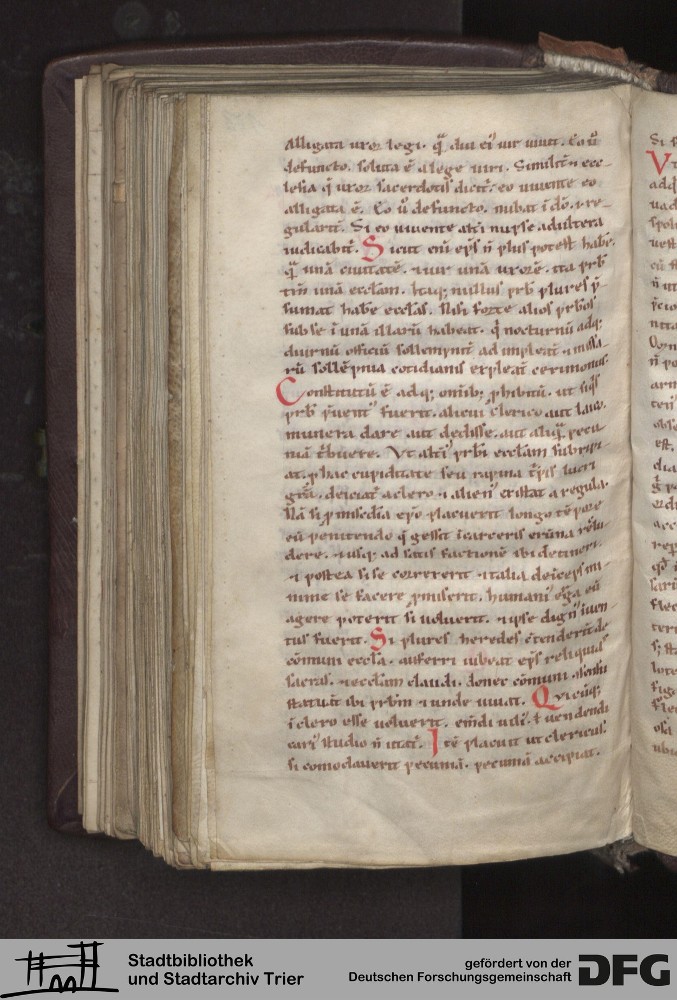 alligata uxor legi. qͣ diu ei᷒ uir uiuit. Eo ů
defuncto. soluta ē a lege uiri. Similit̄ ꝫ ecc-
lesia q̇ uxor sacerdotis dicit᷑. eo uiuente eo
alligata ē. Eo ů defuncto. nubat ī dō. ⁊ re-
gularit̄. Si eo uiuente alt̄i nupserit adultera
iudicabit᷑. Sicut eni ep̄s n̄ plus potest habē.
qͣ unā ciuitatē. ⁊ uir unā uxorē. ita prb̄
tm̄ unā eccl̄am. Itaq; nullus prb̄ plures p̄-
sumat habē eccl̄as. Nisi forte alios prb̄os
sub se ī unā illarū habeat. q̇ nocturnū adq;
diurnū officiū sollempnit̄ adimpleat ⁊ missa-
rū sollēpnia cotidianis expleat cerimoniis.
Constitutū ē adq; omīb; ꝓhibitū. ut siq̇s
prb̄ p̄uent᷒ fuerit. alicui clerico aut laico.
munera dare aut dedisse. aut aliqͣ pecu-
niā tͥbuere. Ut alt̄i᷒ prb̄i eccl̄am subripi-
at. ꝓ hac cupiditate seu rapina t᷑pis lucri
gr̄a. deiciat᷑ a clero ⁊ alien᷒ existat a regula.
Nā si ꝓ misc̄dia ep̄o placuerit longo tēpore
eū penitendo q̇ gessit ī carceris erūna
dere. ⁊ usq; ad satisfactionē ibi detineri.
⁊ postea si se correxerit ⁊ talia deīceps mi-
nime se facere ꝓmiserit. humani᷒ erga eū
agere poterit si uoluerit. ⁊ ipse dign᷒ īuen-
tus fuerit. Si plures heredes c̄tenderīt de
cōmuni eccl̄a. aufferri iubeat ep̄s reliquias
sacras. ⁊ eccl̄am claudi. donec cōmuni
statuāt ibi prb̄m ⁊ unde uiuat. Quicūq;
ī clero esse uoluerit. em̄di uili᷒ t̄ uendendi
cari᷒ studio n̄ utat᷑. Itē placuit ut clericus
si comodauerit pecuniā. pecuniā accipiat.
Stadtbibliothek
und Stadtarchiv Trier
gefördert von der
Deutschen Forschungsgemeinschaft
DFG